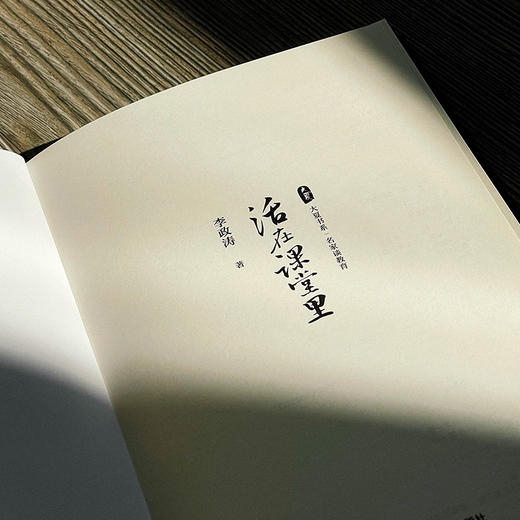 大夏书系·名家谈教育
活在课堂里
李政涛 著